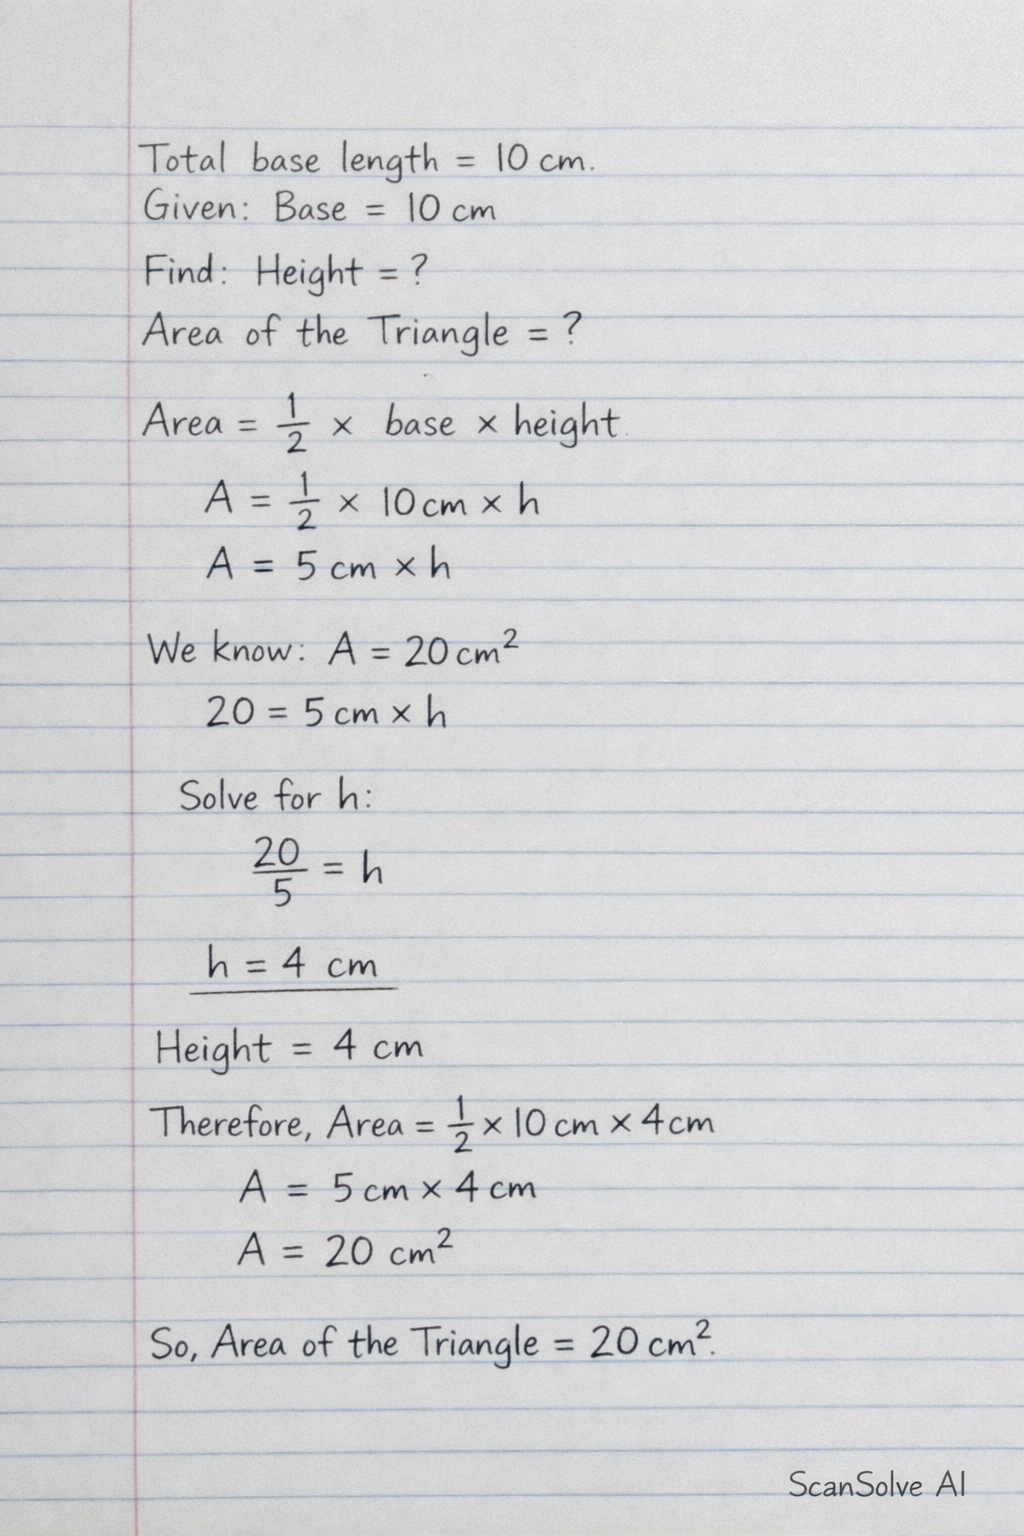 Total base length = 10 cm.
Given: Base = 10 cm
Find: Height = ?
Area of the Triangle = ?
Area = 1/2 × base × height.
A = 1/2 × 10 cm × h
A = 5 cm × h
We know: A = 20 cm²
20 = 5 cm × h
Solve for h:
20/5 = h
h = 4 cm
Height = 4 cm
Therefore, Area = 1/2 × 10 cm × 4 cm
A = 5 cm × 4 cm
A = 20 cm²
So, Area of the Triangle = 20 cm².
ScanSolve AI